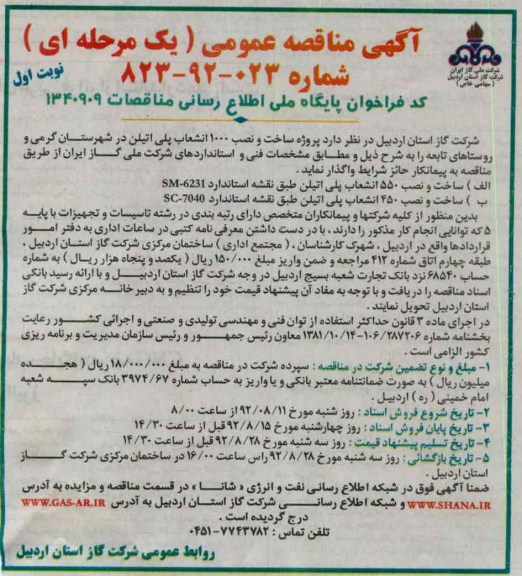 آگهی مناقصه عمومی ( یک مرحله ای )
شماره ۰۲۳-۹۲-۸۲۳
نوبت اول
شرکت ملی گاز ایران
شرکت گاز استان اردبیل
(سهامی خاص)
کد فراخوان پایگاه ملی اطلاع رسانی مناقصات ۱۳۴۰۹۰۹
شرکت گاز استان اردبیل در نظر دارد پروژه ساخت و نصب ۱۰۰۰ انشعاب پلی اتیلن در شهرستان گرمی و
روستاهای تابعه را به شرح ذیل و مطابق مشخصات فنی و استانداردهای شرکت ملی گاز ایران از طریق
مناقصه به پیمانکار حائز شرایط واگذار نماید .
الف ) ساخت و نصب ۵۵۰ انشعاب پلی اتیلن طبق نقشه استاندارد SM-6231
ب ) ساخت و نصب ۴۵۰ انشعاب پلی اتیلن طبق نقشه استاندارد SC-7040
بدین منظور از کلیه شرکتها و پیمانکاران متخصص دارای رتبه بندی در رشته تاسیسات و تجهیزات با پایه
۵ که توانایی انجام کار مذکور را دارند ، با در دست داشتن معرفی نامه کتبی در ساعات اداری به دفتر امور
قراردادها واقع در اردبیل ، شهرک کارشناسان ، ( مجتمع اداری ) ساختمان مرکزی شرکت گاز استان اردبیل ،
طبقه چهارم اتاق شماره ۴۱۲ مراجعه و ضمن واریز مبلغ ۱۵۰/۰۰۰ ریال ( یکصد و پنجاه هزار ریال ) به شماره
حساب ۶۸۵۴۰ نزد بانک تجارت شعبه بسیج اردبیل در وجه شرکت گاز استان اردبیل و با ارائه رسید بانکی
اسناد مناقصه را دریافت و با توجه به مفاد آن پیشنهاد قیمت خود را تنظیم و به دبیر خانه مرکزی شرکت گاز
استان اردبیل تحویل نمایند .
در اجرای ماده ۳ قانون حداکثر استفاده از توان فنی و مهندسی تولیدی و صنعتی و اجرائی کشور رعایت
بخشنامه شماره ۱۰۶/۲۸۷۲۰۶-۱۳۸۱/۱۰/۱۴ معاون رئیس جمهور و رئیس سازمان مدیریت و برنامه ریزی
کشور الزامی است .
۱- مبلغ و نوع تضمین شرکت در مناقصه : سپرده شرکت در مناقصه به مبلغ ۱۸/۰۰۰/۰۰۰ ریال ( هجده
میلیون ریال ) به صورت ضمانتنامه معتبر بانکی و یا واریز به حساب شماره ۳۹۷۴/۶۷ بانک سپه شعبه
امام خمینی ( ره ) اردبیل .
۲- تاریخ شروع فروش اسناد : روز شنبه مورخ ۹۲/۰۸/۱۱ از ساعت ۸/۰۰
۳- تاریخ پایان فروش اسناد : روز چهارشنبه مورخ ۹۲/۸/۱۵ قبل از ساعت ۱۴/۳۰
۴- تاریخ تسلیم پیشنهاد قیمت : روز سه شنبه مورخ ۹۲/۸/۲۸ قبل از ساعت ۱۴/۳۰
۵- تاریخ بازگشائی : روز سه شنبه مورخ ۹۲/۸/۲۸ راس ساعت ۱۶/۰۰ در ساختمان مرکزی شرکت گاز
استان اردبیل .
ضمنا آگهی فوق در شبکه اطلاع رسانی نفت و انرژی « شانا » در قسمت مناقصه و مزایده به آدرس
WWW.SHANA.IR و شبکه اطلاع رسانی شرکت گاز استان اردبیل به آدرس WWW.GAS-AR.IR
درج گردیده است .
تلفن تماس : ۷۷۴۳۷۸۲-۰۴۵۱
روابط عمومی شرکت گاز استان اردبیل